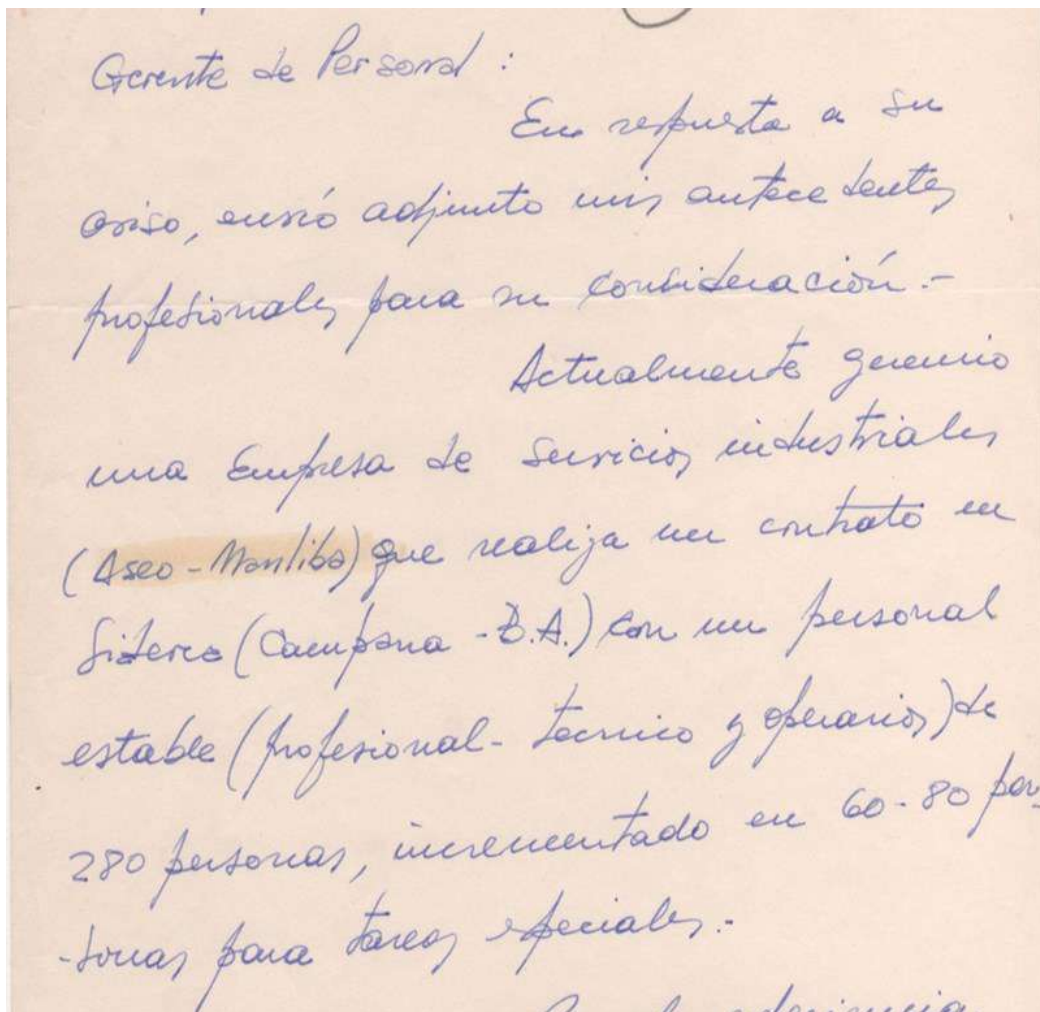 Gerente de Personal :
En respuesta a su
aviso, envió adjunto mis antecedentes
profesionales para su consideración.-
Actualmente gerencio
una Empresa de Servicios industriales
(Aseo - Manliba) que realiza un contrato en
Siderca (Campana - B.A.) con un personal
estable (profesional - tecnico y operarios) de
280 personas, incrementado en 60-80 per
-sonas para tareas especiales.-
experiencia